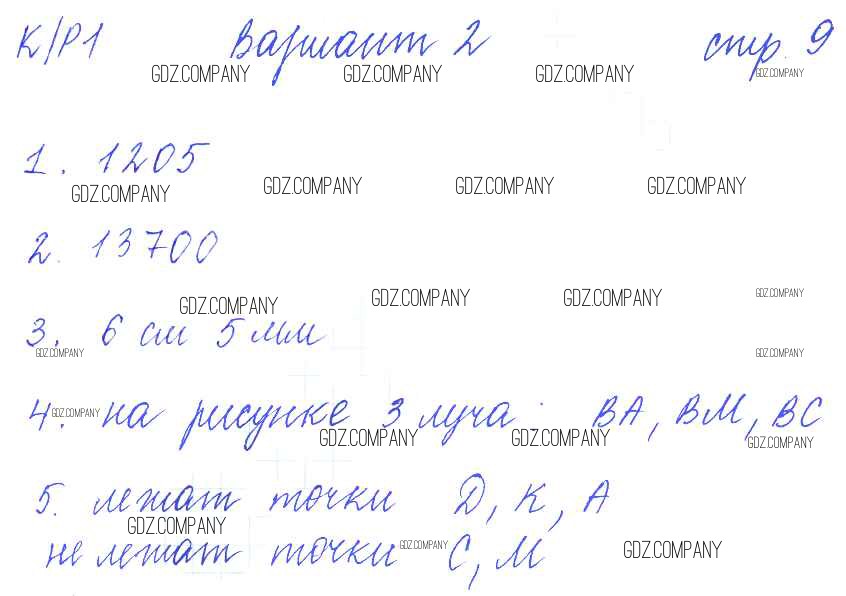 К/Р1 Вариант 2 стр. 9
GDZ.COMPANY GDZ.COMPANY GDZ.COMPANY GDZ.COMPANY
1. 1205
GDZ.COMPANY GDZ.COMPANY GDZ.COMPANY GDZ.COMPANY
2. 13700
GDZ.COMPANY GDZ.COMPANY GDZ.COMPANY GDZ.COMPANY
3. 6 см 5 мм
GDZ.COMPANY GDZ.COMPANY
4. GDZ.COMPANY на рисунке 3 луча: ВА, ВМ, ВС
GDZ.COMPANY GDZ.COMPANY GDZ.COMPANY
5. лежат точки D, К, А
GDZ.COMPANY
не лежат точки GDZ.COMPANY С, М GDZ.COMPANY